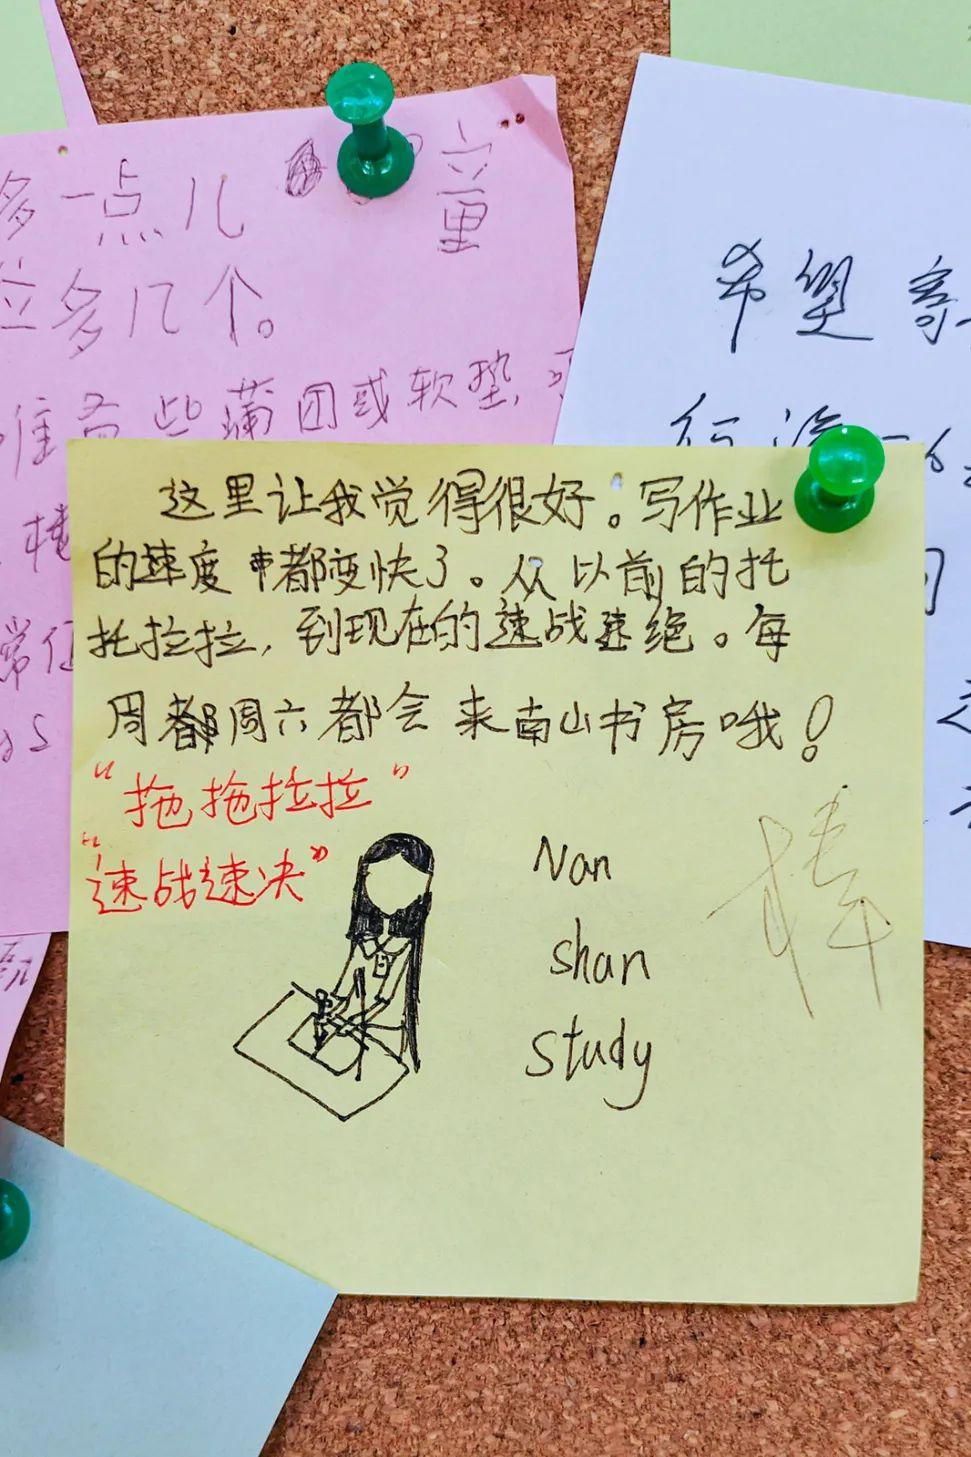 多一点儿
童
位多几个。
准备些蒲团或软垫,
希望寄
这里让我觉得很好。写作业
的速度都变快了。从以前的托
托拉拉,到现在的速战速绝。每
周都周六都会来南山书房哦!
“拖拖拉拉”
“速战速决”
棒
Nan
shan
study